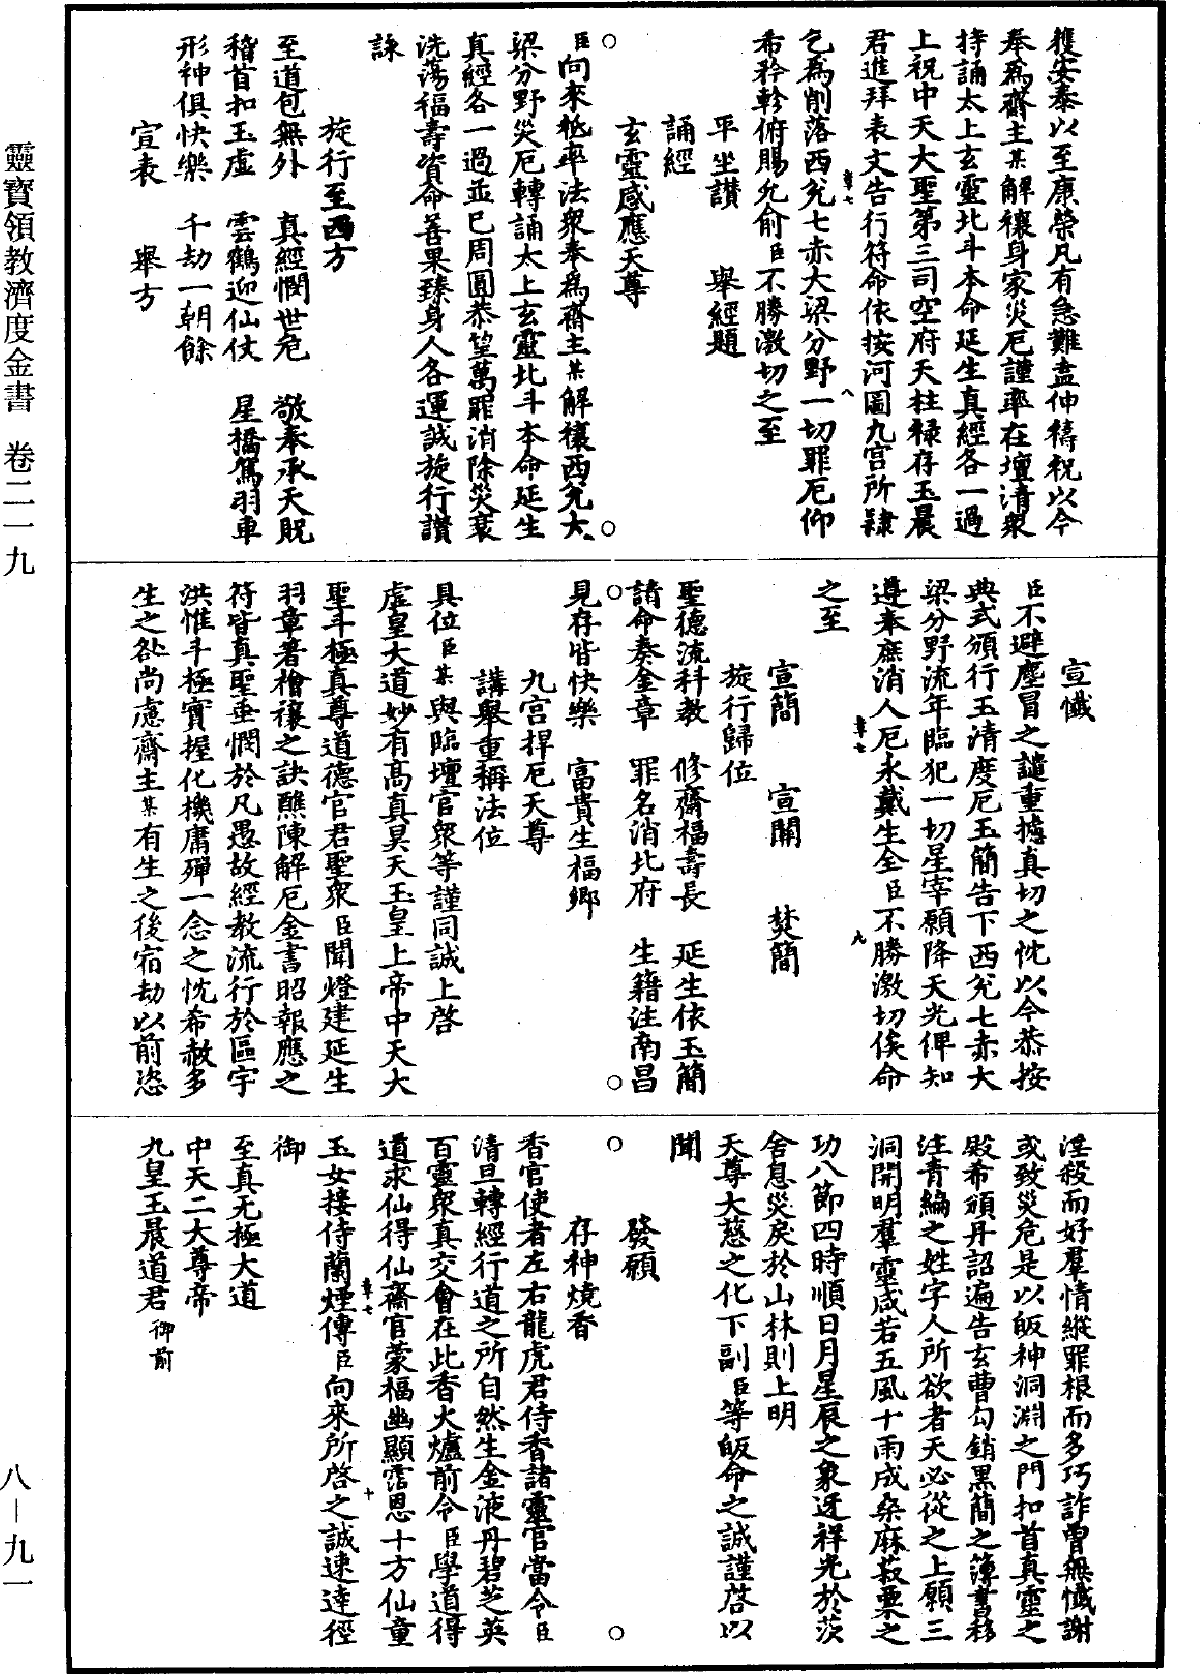 獲安泰以至康榮凡有急難盡伸禱祝以今
奉爲齋主某解禳身家災厄謹率在壇清衆
持誦太上玄靈北斗本命延生真經各一過
上祝中天大聖第三司空府天柱祿存玉晨
君進拜表文告行符命依按河圖九宮所隸
乞爲削落西兌七赤大梁分野一切罪厄仰
希矜軫俯賜允俞臣不勝激切之至
平坐讃　舉經題
誦經
玄靈感應天尊
臣向來祗率法衆奉爲齋主某解禳西兌大
梁分野災厄轉誦太上玄靈北斗本命延生
真經各一過並已周圓恭望萬罪消除災衰
洗蕩福壽資命善果臻身人各運誠旋行讃
詠
旋行至西方
至道包無外　真經憫世危　敬奉承天貺
稽首扣玉虛　雲鶴迎仙仗　星橋駕羽車
形神俱快樂　千劫一朝餘
宣表　舉方
宣懺
臣不避塵冒之譴重攄真切之忱以今恭按
典式頒行玉清度厄玉簡告下西兌七赤大
梁分野流年臨犯一切星宰願降天光俾知
遵奉庶消人厄永戴生全臣不勝激切俟命
之至
宣簡　宣關　焚簡
旋行歸位
聖德流科教　修齋福壽長　延生依玉簡
請命奏金章　罪名消北府　生籍注南昌
見存皆快樂　富貴生福鄉
九宮捍厄天尊
講舉重稱法位
具位臣某與臨壇官衆等謹同誠上啓
虛皇大道妙有高真昊天玉皇上帝中天大
聖斗極真尊道德官君聖衆臣聞燈建延生
羽章著檜禳之訣醮陳解厄金書昭報應之
符皆真聖垂憫於凡愚故經教流行於區宇
洪惟斗極實握化機庸殫一念之忱希赦多
生之愆尚慮齋主某有生之後宿劫以前恣
淫殺而好羣情縱罪根而多巧詐曾無懺謝
或致災危是以皈神洞淵之門扣首真靈之
殿希頒丹詔遍告玄曹勾銷黑簡之簿書移
注青編之姓字人所欲者天必從之上願三
洞開明羣靈咸若五風十雨成桑麻菽粟之
功八節四時順日月星辰之象迓祥光於茨
舍息災戾於山林則上明
天尊大慈之化下副臣等皈命之誠謹啓以
聞
發願
存神燒香
香官使者左右龍虎君侍香諸靈官當令臣
清旦轉經行道之所自然生金液丹碧芝英
百靈衆真交會在此香火爐前令臣學道得
道求仙得仙齋官蒙福幽顯霑恩十方仙童
玉女接侍蘭煙傳臣向來所啓之誠速達徑
御
至真无極大道
中天二大尊帝
九皇玉晨道君御前
靈寶領教濟度金書　卷二一九
八—九一